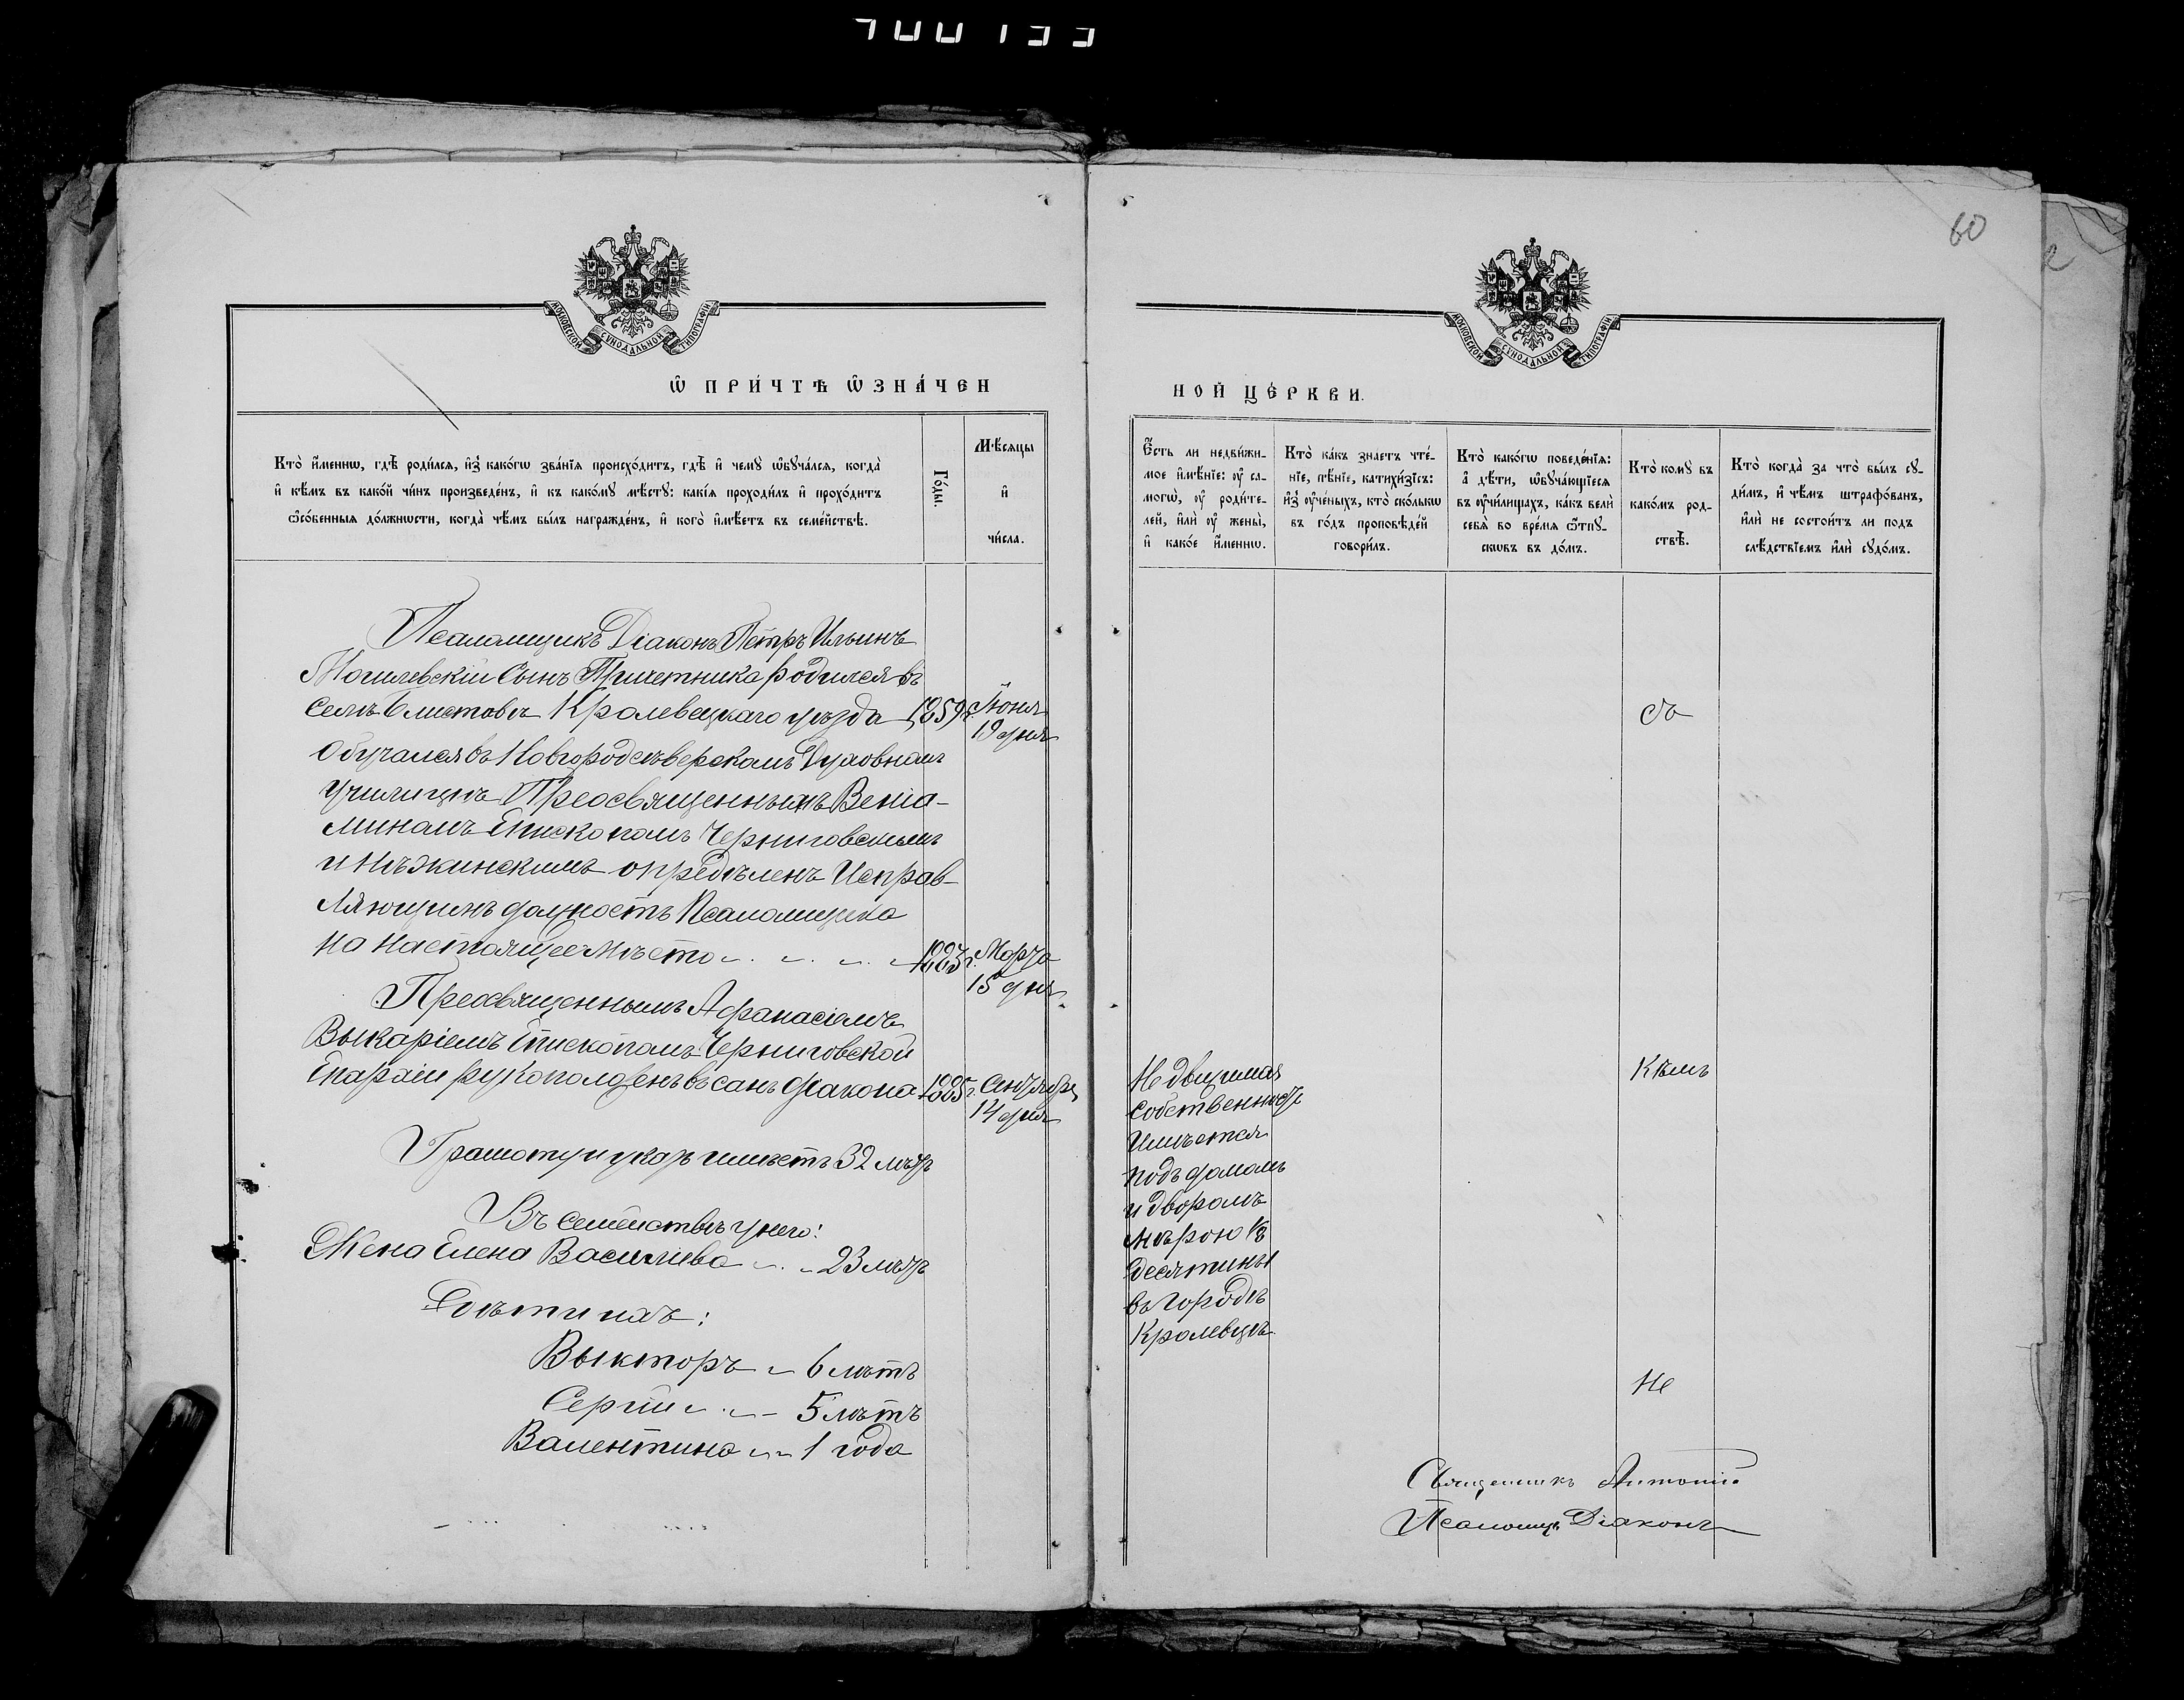 700133
60
2
МОСКОВСКОЙ СѴНОДАЛЬНОЙ ТИПОГРАФІИ
МОСКОВСКОЙ СѴНОДАЛЬНОЙ ТИПОГРАФІИ
Ѡ ПРИ́ЧТѢ ѠЗНА́ЧЕН
НОЙ ЦЕ́РКВИ.
Кто̀ и҆́меннѡ, гдѣ̀ роди́лсѧ, и҆з̾ како́гѡ зва́нїѧ происхо́дитъ, гдѣ̀ и҆ чемꙋ̀ ѡ҆бꙋча́лсѧ, когда̀
и҆ кѣ́мъ въ како́й чи́нъ произведе́нъ, и҆ къ како́мꙋ мѣ́стꙋ: какі́ѧ проходи́лъ и҆ прохо́дитъ
ѻ҆со́бенныѧ до́лжнѡсти, когда̀ чѣ́мъ бы́лъ награжде́нъ, и҆ кого̀ и҆мѣ́етъ въ семе́йствѣ.
Го́ды.
Мѣ́сѧцы
и҆
чи́сла.
Є҆́сть ли недви́жи-
мое и҆мѣ́нїе: ᲂу҆ са-
могѡ̀, ᲂу҆ роди́те-
лей, и҆лѝ ᲂу҆ жены̀,
и҆ како́е и҆́меннѡ.
Кто̀ ка́къ зна́етъ чте́-
нїе, пѣ́нїе, катихи́зїсъ:
и҆з̾ ᲂу҆че́ныхъ, кто̀ ско́лькѡ
въ го́дъ проповѣ́дей
говори́лъ.
Кто̀ како́гѡ поведе́нїѧ:
а҆ дѣ́ти, ѡ҆бꙋча́ющїесѧ
въ ᲂу҆чи́лищахъ, ка́къ велѝ
себѧ̀ во вре́мѧ ѿпꙋ-
скѡвъ въ до́мъ.
Кто̀ комꙋ̀ въ
како́мъ род-
ствѣ̀.
Кто̀ когда̀ за что̀ бы́лъ сꙋ-
ди́мъ, и҆ чѣ́мъ штрафо́ванъ,
и҆лѝ не состои́тъ ли подъ
слѣ́дствїемъ и҆лѝ сꙋдо́мъ.
Псаломщикъ Діаконъ Петръ Ильинъ
Могилевскій Сынъ Причетника родился въ
селѣ Клишковъ Кролевецкаго уѣзда 1859 г. Іюня
19 дня
Обучался въ Новгородсѣверскомъ Духовномъ
училищѣ Преосвященнымъ Веніа-
миномъ Епископомъ Черниговскимъ
и Нѣжинскимъ опредѣленъ Исправ-
ляющимъ должность Псаломщика
на настоящее мѣсто 1883 г. Марта
15 дня
Преосвященнымъ Афанасіемъ
Выкаріемъ Епископомъ Черниговской
Епархіи рукоположенъ въ санъ діакона 1885 г. Сентября
14 дня
Грамоту и указъ имѣетъ 32 лѣтъ
Въ семействѣ у него:
Жена Елена Василіева 23 лѣтъ
Дѣти ихъ:
Выкторъ 6 лѣтъ
Сергій 5 лѣтъ
Валентина 1 года
Недвижимая
собственность
имѣется
подъ домомъ
и дворомъ
мѣрою 1/8
десятины
въ городѣ
Кролевцѣ
Съ
Кѣмъ
Не
Священникъ Антоній
Псаломщ. Діаконъ